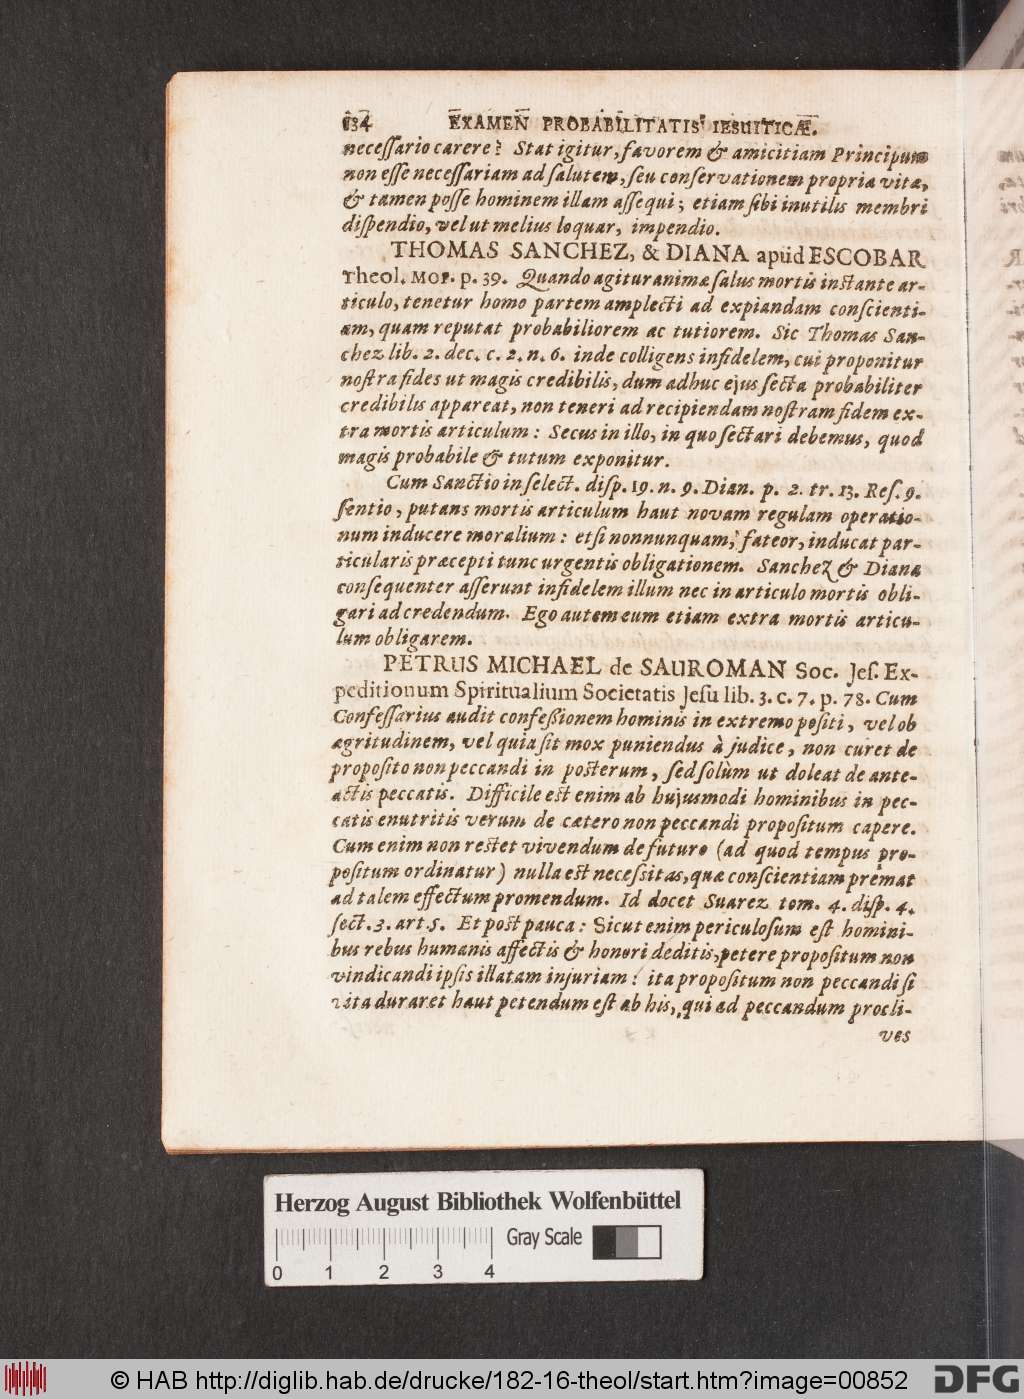 134 EXAMEN PROBABILITATIS IESUITICÆ.
neceſſario carere? Stat igitur, favorem & amicitiam Principum
non eſſe neceſſariam ad ſalutem, ſeu conſervationem propria vitæ,
& tamen poſſe hominem illam aſſequi; etiam ſibi inutilis membri
diſpendio, vel ut melius loquar, impendio.
THOMAS SANCHEZ, & DIANA apud ESCOBAR
Theol. Mor. p. 39. Quando agitur animæ ſalus mortis inſtante ar-
ticulo, tenetur homo partem amplecti ad expiandam conſcienti-
am, quam reputat probabiliorem ac tutiorem. Sic Thomas San-
chez lib. 2. dec. c. 2. n. 6. inde colligens infidelem, cui proponitur
noſtra fides ut magis credibilis, dum adhuc ejus ſecta probabiliter
credibilis appareat, non teneri ad recipiendam noſtram fidem ex-
tra mortis articulum: Secus in illo, in quo ſectari debemus, quod
magis probabile & tutum exponitur.
Cum Sanctio in ſelect. diſp. 19. n. 9. Dian. p. 2. tr. 13. Reſ. 9.
ſentio, putans mortis articulum haut novam regulam operatio-
num inducere moralium: etſi nonnunquam, fateor, inducat par-
ticularis præcepti tunc urgentis obligationem. Sanchez & Diana
conſequenter aſſerunt infidelem illum nec in articulo mortis obli-
gari ad credendum. Ego autem eum etiam extra mortis articu-
lum obligarem.
PETRUS MICHAEL de SAUROMAN Soc. Jeſ. Ex-
peditionum Spiritualium Societatis Jeſu lib. 3. c. 7. p. 78. Cum
Confeſſarius audit confeßionem hominis in extremo poſiti, vel ob
ægritudinem, vel quia ſit mox puniendus à judice, non curet de
propoſito non peccandi in poſterum, ſed ſolùm ut doleat de ante-
actis peccatis. Difficile eſt enim ab hujusmodi hominibus in pec-
catis enutritis verum de cætero non peccandi propoſitum capere.
Cum enim non reſtet vivendum de futuro (ad quod tempus pro-
poſitum ordinatur) nulla eſt neceſsitas, quæ conſcientiam premat
ad talem effectum promendum. Id docet Suarez tom. 4. diſp. 4.
ſect. 3. art. 5. Et poſt pauca: Sicut enim periculoſum eſt homini-
bus rebus humanis affectis & honori deditis, petere propoſitum non
vindicandi ipſis illatam injuriam: ita propoſitum non peccandi ſi
vita duraret haut petendum eſt ab his, qui ad peccandum procli-
ves
Herzog August Bibliothek Wolfenbüttel
Gray Scale
0 1 2 3 4
© HAB http://diglib.hab.de/drucke/182-16-theol/start.htm?image=00852
DFG